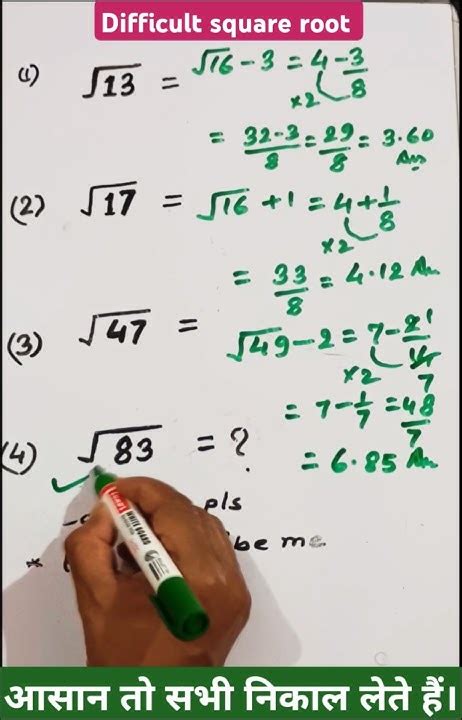 Difficult square root
(1) √13 = √16 - 3 = 4 - 3/8
×2
= 32-3/8 = 29/8 = 3.60 Ans
(2) √17 = √16 + 1 = 4 + 1/8
×2
= 33/8 = 4.12 An
(3) √47 = √49 - 2 = 7 - 2/14 1/7
×2
= 7 - 1/7 = 48/7
= 6.85 An
(4) √83 = ?
pls
be me
*
WHITE BOARD
आसान तो सभी निकाल लेते हैं।